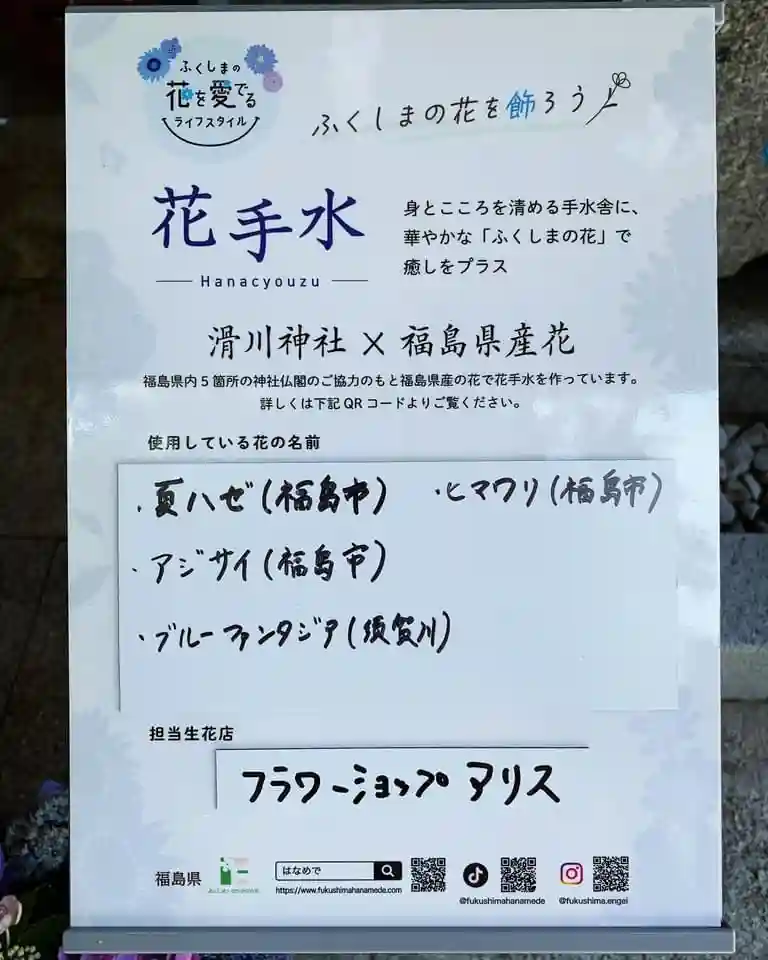 ふくしまの
花を愛でる
ライフスタイル
ふくしまの花を飾ろう
花手水
Hanacyouzu
身とこころを清める手水舎に、
華やかな「ふくしまの花」で
癒しをプラス
滑川神社 × 福島県産花
福島県内5箇所の神社仏閣のご協力のもと福島県産の花で花手水を作っています。
詳しくは下記QRコードよりご覧ください。
使用している花の名前
・夏ハゼ(福島市) ・ヒマワリ(福島市)
・アジサイ(福島市)
・ブルーファンタジア(須賀川)
担当生花店
フラワーショップ アリス
福島県
はなめで
https://www.fukushimahanamede.com
@fukushimahanamede
@fukushima.engei